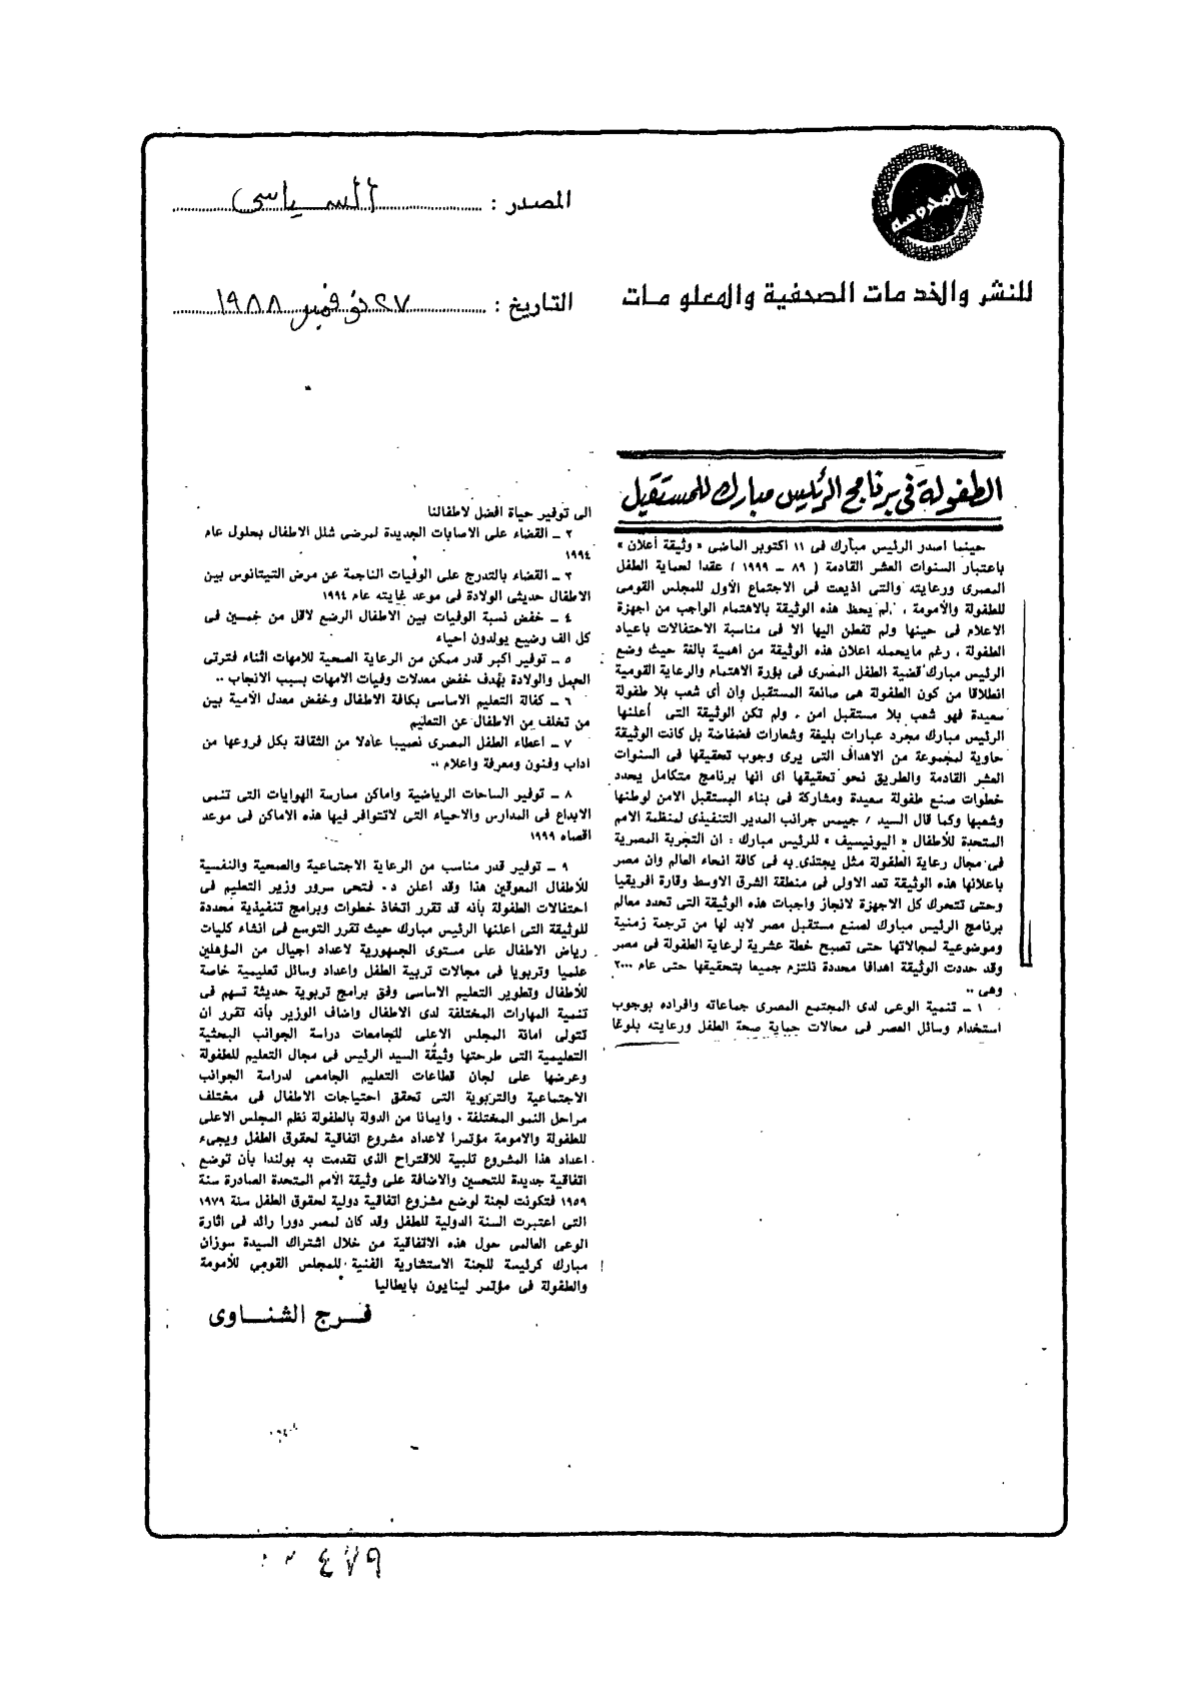 المحروسة
للنشر والخدمات الصحفية والمعلومات
المصدر : السياسى
التاريخ : ٢٧ نوفمبر ١٩٨٨
الطفولة فى برنامج الرئيس مبارك للمستقبل
حينما اصدر الرئيس مبارك فى ١١ اكتوبر الماضى « وثيقة أعلان »
باعتبار السنوات العشر القادمة ( ٨٩ – ١٩٩٩ ) عقدا لحماية الطفل
المصرى ورعايته والتى اذيعت فى الاجتماع الأول للمجلس القومى
للطفولة والأمومة ، لم يحظ هذه الوثيقة بالاهتمام الواجب من اجهزة
الاعلام فى حينها ولم تفطن اليها الا فى مناسبة الاحتفالات باعياد
الطفولة ، رغم مايحمله اعلان هذه الوثيقة من اهمية بالغة حيث وضع
الرئيس مبارك قضية الطفل المصرى فى بؤرة الاهتمام والرعاية القومية
انطلاقا من كون الطفولة هى صانعة المستقبل وان أى شعب بلا طفولة
سعيدة فهو شعب بلا مستقبل امن ، ولم تكن الوثيقة التى أعلنها
الرئيس مبارك مجرد عبارات بليغة وشعارات فضفاضة بل كانت الوثيقة
حاوية لمجموعة من الاهداف التى يرى وجوب تحقيقها فى السنوات
العشر القادمة والطريق نحو تحقيقها اى انها برنامج متكامل يحدد
خطوات صنع طفولة سعيدة ومشاركة فى بناء المستقبل الامن لوطنها
وشعبها وكما قال السيد / جيمس جرانب المدير التنفيذى لمنظمة الامم
المتحدة للأطفال « اليونيسيف » للرئيس مبارك : ان التجربة المصرية
فى مجال رعاية الطفولة مثل يحتذى به فى كافة انحاء العالم وان مصر
باعلانها هذه الوثيقة تعد الاولى فى منطقة الشرق الاوسط وقارة افريقيا
وحتى تتحرك كل الاجهزة لانجاز واجبات هذه الوثيقة التى تحدد معالم
برنامج الرئيس مبارك لصنع مستقبل مصر لابد لها من ترجمة زمنية
وموضوعية لمجالاتها حتى تصبح خطة عشرية لرعاية الطفولة فى مصر
وقد حددت الوثيقة اهدافا محددة نلتزم جميعا بتحقيقها حتى عام ٢٠٠٠
وهى ..
١ – تنمية الوعى لدى المجتمع المصرى جماعاته وافراده بوجوب
استخدام وسائل العصر فى مجالات حماية صحة الطفل ورعايته بلوغا
الى توفير حياة افضل لاطفالنا
٢ – القضاء على الاصابات الجديدة لمرضى شلل الاطفال بحلول عام
١٩٩٤
٣ – القضاء بالتدرج على الوفيات الناجمة عن مرض التيتانوس بين
الاطفال حديثى الولادة فى موعد غايته عام ١٩٩٤
٤ – خفض نسبة الوفيات بين الاطفال الرضع لاقل من خمسين فى
كل الف رضيع يولدون احياء
٥ – توفير اكبر قدر ممكن من الرعاية الصحية للامهات اثناء فترتى
الحمل والولادة بهدف خفض معدلات وفيات الامهات بسبب الانجاب ..
٦ – كفالة التعليم الاساسى بكافة الاطفال وخفض معدل الأمية بين
من تخلف من الاطفال عن التعليم
٧ – اعطاء الطفل المصرى نصيبا عادلا من الثقافة بكل فروعها من
اداب وفنون ومعرفة واعلام ..
٨ – توفير الساحات الرياضية واماكن ممارسة الهوايات التى تنمى
الابداع فى المدارس والاحياء التى لاتتوافر فيها هذه الاماكن فى موعد
اقصاه ١٩٩٩
٩ – توفير قدر مناسب من الرعاية الاجتماعية والصحية والنفسية
للأطفال المعوقين هذا وقد اعلن د. فتحى سرور وزير التعليم فى
احتفالات الطفولة بأنه قد تقرر اتخاذ خطوات وبرامج تنفيذية محددة
للوثيقة التى اعلنها الرئيس مبارك حيث تقرر التوسع فى انشاء كليات
رياض الاطفال على مستوى الجمهورية لاعداد اجيال من المؤهلين
علميا وتربويا فى مجالات تربية الطفل واعداد وسائل تعليمية خاصة
للأطفال وتطوير التعليم الاساسى وفق برامج تربوية حديثة تسهم فى
تنمية المهارات المختلفة لدى الاطفال واضاف الوزير بأنه تقرر ان
تتولى امانة المجلس الاعلى للجامعات دراسة الجوانب البحثية
التعليمية التى طرحتها وثيقة السيد الرئيس فى مجال التعليم للطفولة
وعرضها على لجان قطاعات التعليم الجامعى لدراسة الجوانب
الاجتماعية والتربوية التى تحقق احتياجات الاطفال فى مختلف
مراحل النمو المختلفة . وايمانا من الدولة بالطفولة نظم المجلس الاعلى
للطفولة والامومة مؤتمرا لاعداد مشروع اتفاقية لحقوق الطفل ويجىء
اعداد هذا المشروع تلبية للاقتراح الذى تقدمت به بولندا بأن توضع
اتفاقية جديدة للتحسين والاضافة على وثيقة الأمم المتحدة الصادرة سنة
١٩٥٩ فتكونت لجنة لوضع مشروع اتفاقية دولية لحقوق الطفل سنة ١٩٧٩
التى اعتبرت السنة الدولية للطفل وقد كان لمصر دورا رائد فى اثارة
الوعى العالمى حول هذه الاتفاقية من خلال اشتراك السيدة سوزان
مبارك كرئيسة للجنة الاستشارية الفنية للمجلس القومى للأمومة
والطفولة فى مؤتمر لينايون بايطاليا
فرج الشناوى